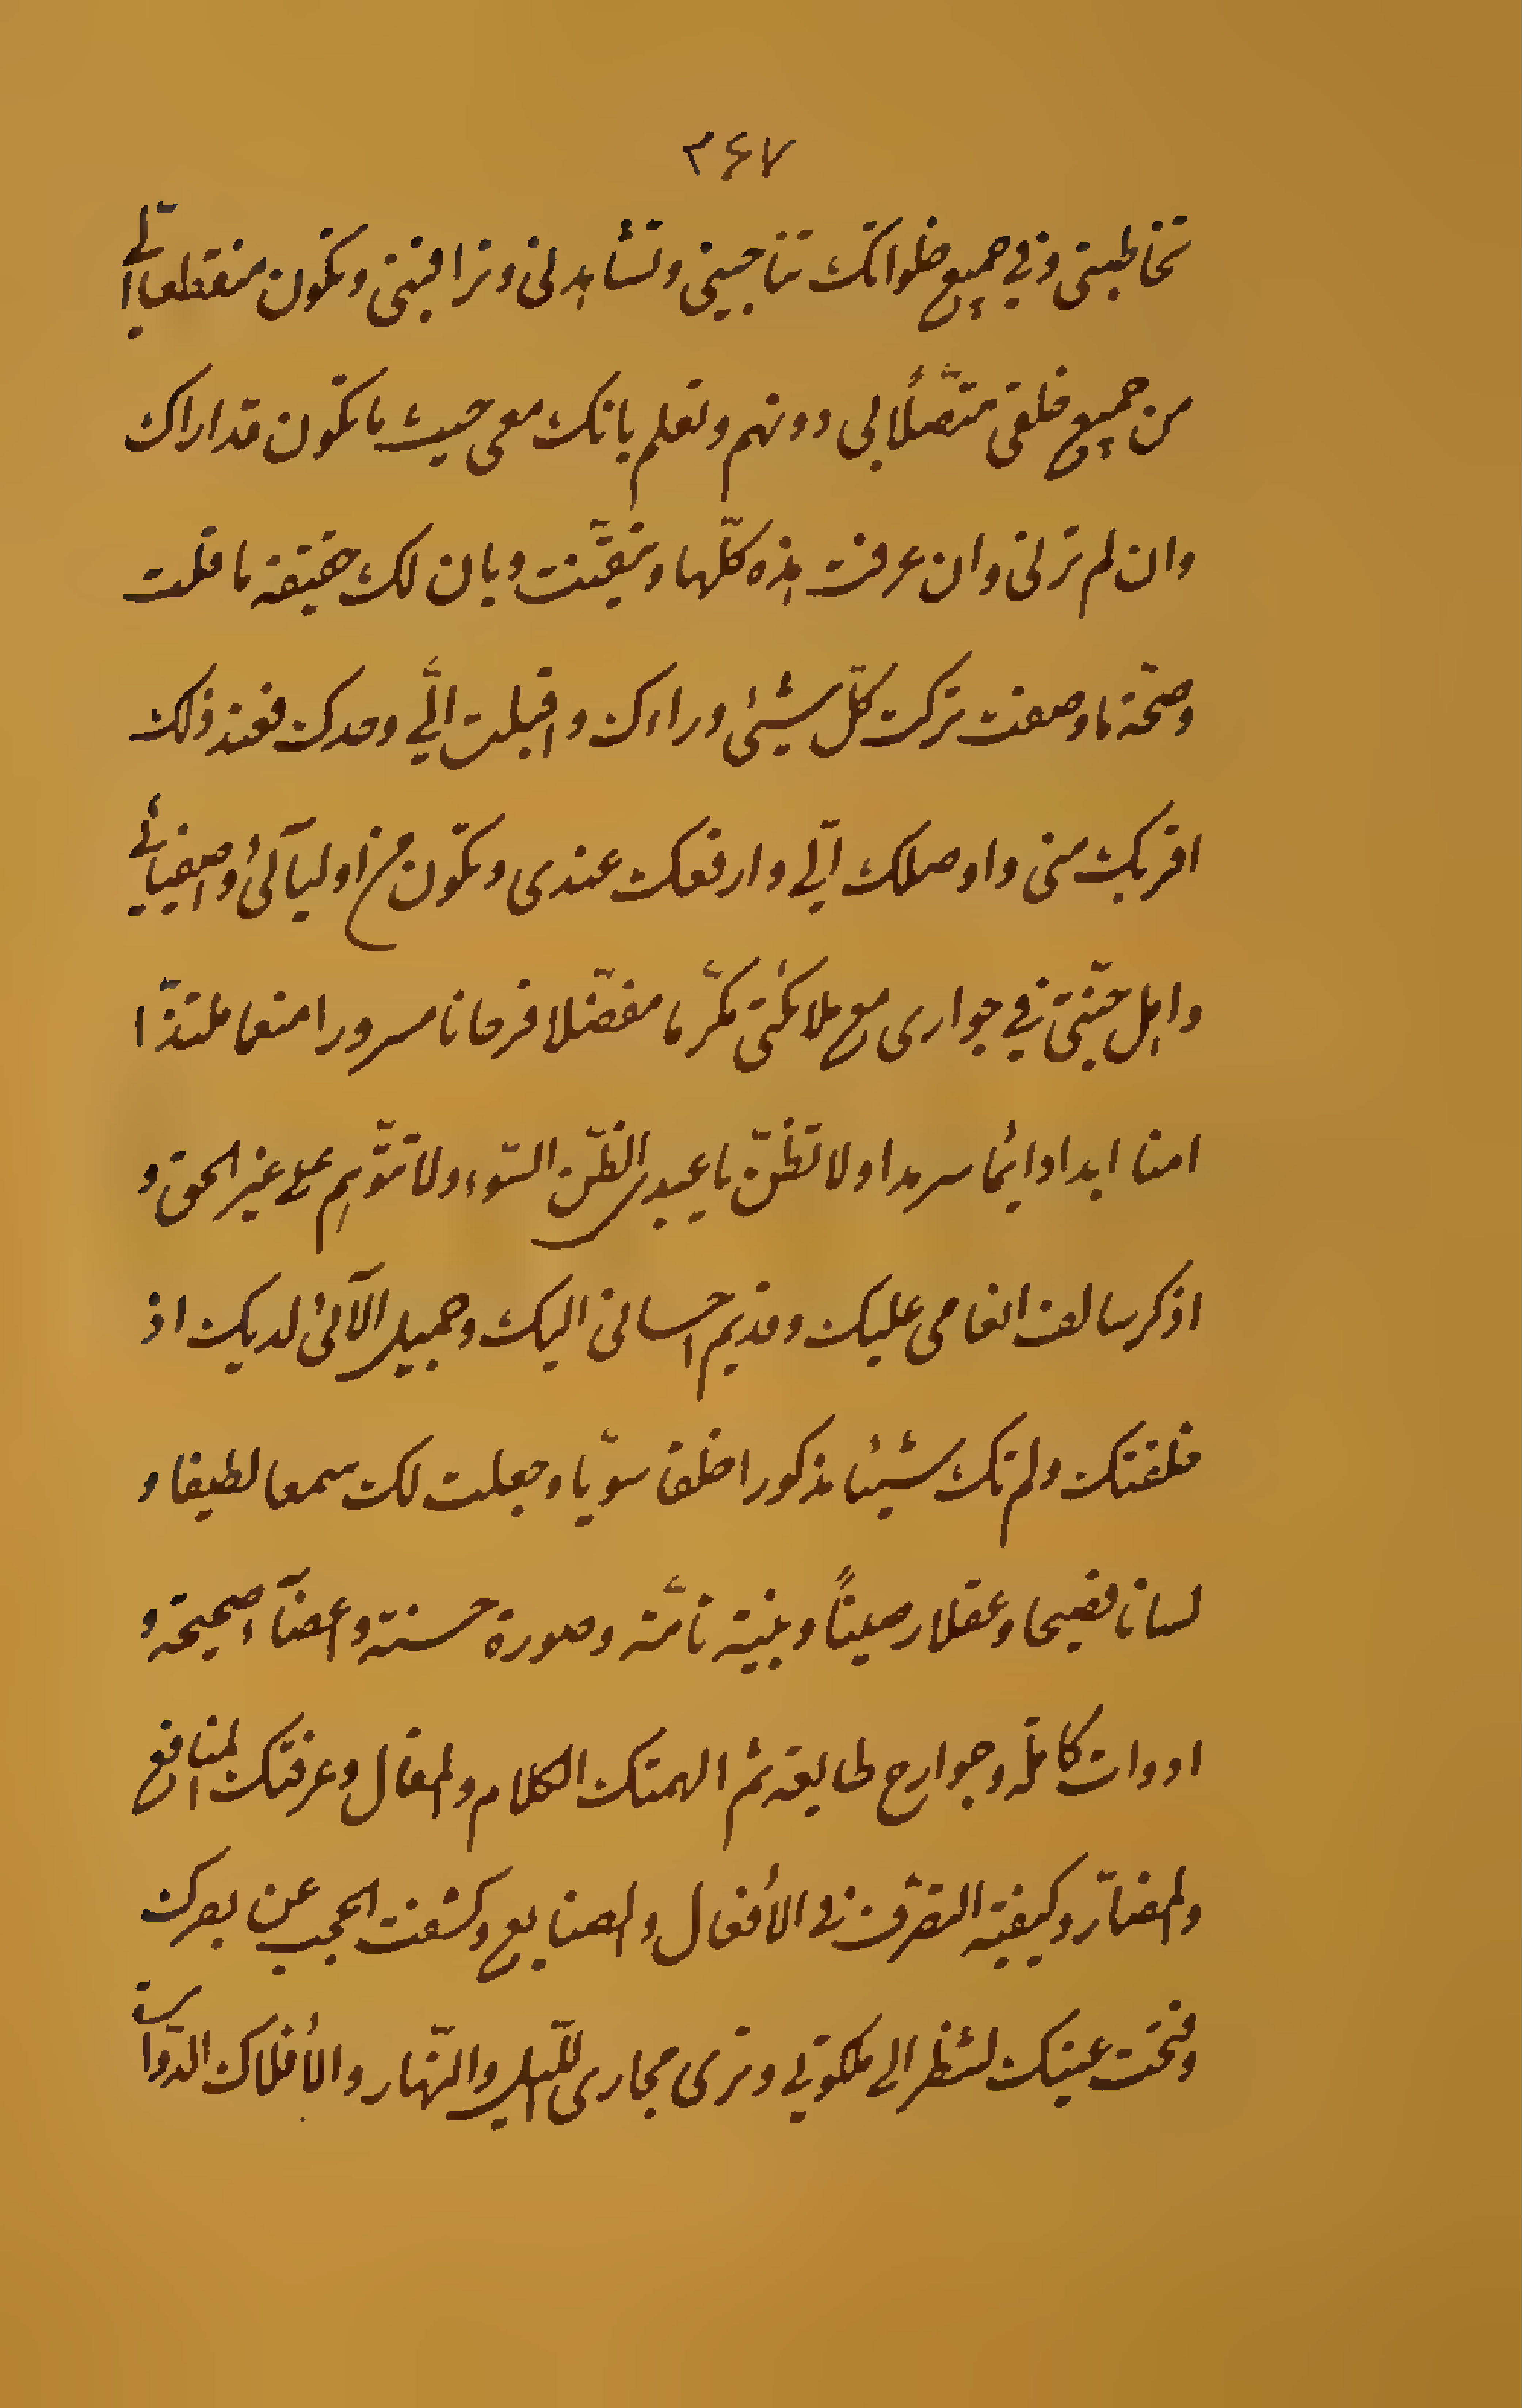 ۳۶۷
تخاطبنی و فی جمیع خلواتک تناجینی و تشاهدنی و تراقبنی و تکون منقطعا الیّ
من جمیع خلقی متّصلًا بی دونهم و تعلم بانک معی حیث ما تکون قد اراک
و ان لم ترنی و ان عرفت هذه کلّها و تیقّنت و بان لک حقیقة ما قلت
و صحّة ما وصفت ترکت کلّ شیئ وراءک و اقبلت الیَّ وحدک فعند ذلک
اقربک منی و اوصلک الیّ و ارفعک عندی و تکون من أولیآئی و اصفیائی
و اهل جنّتی فی جواری مع ملائکتی مکرّما مفضّلا فرحانا مسرورا منعما ملتذّا
امنا ابدا دائما سرمدا و لا تظنّ یا عبدی الظّن السّوء و لا تتوّهم علی غیر الحق و
اذکر سالف انعامی علیک و قدیم احسانی الیک و جمیل الآئی لدیک اذ
خلقتک و لم تک شیئا مذکورا خلقا سوّیا و جعلت لک سمعا لطیفا و
لسانا فصیحا و عقلا رصینًا و بنیة تامّة و صورة حسنة و اعضآء صحیحة و
ادوات کاملة و جوارح طایعة ثم الهمتک الکلام و المقال و عرفتک المنافع
و المضارّ و کیفیة التصرّف فی الأفعال و الصنایع و کشفت الحجب عن بصرک
و فتحت عینک لتنظر الی ملکوتی و تری مجاری اللّیل و النّهار و الأفلاک الدّوارة